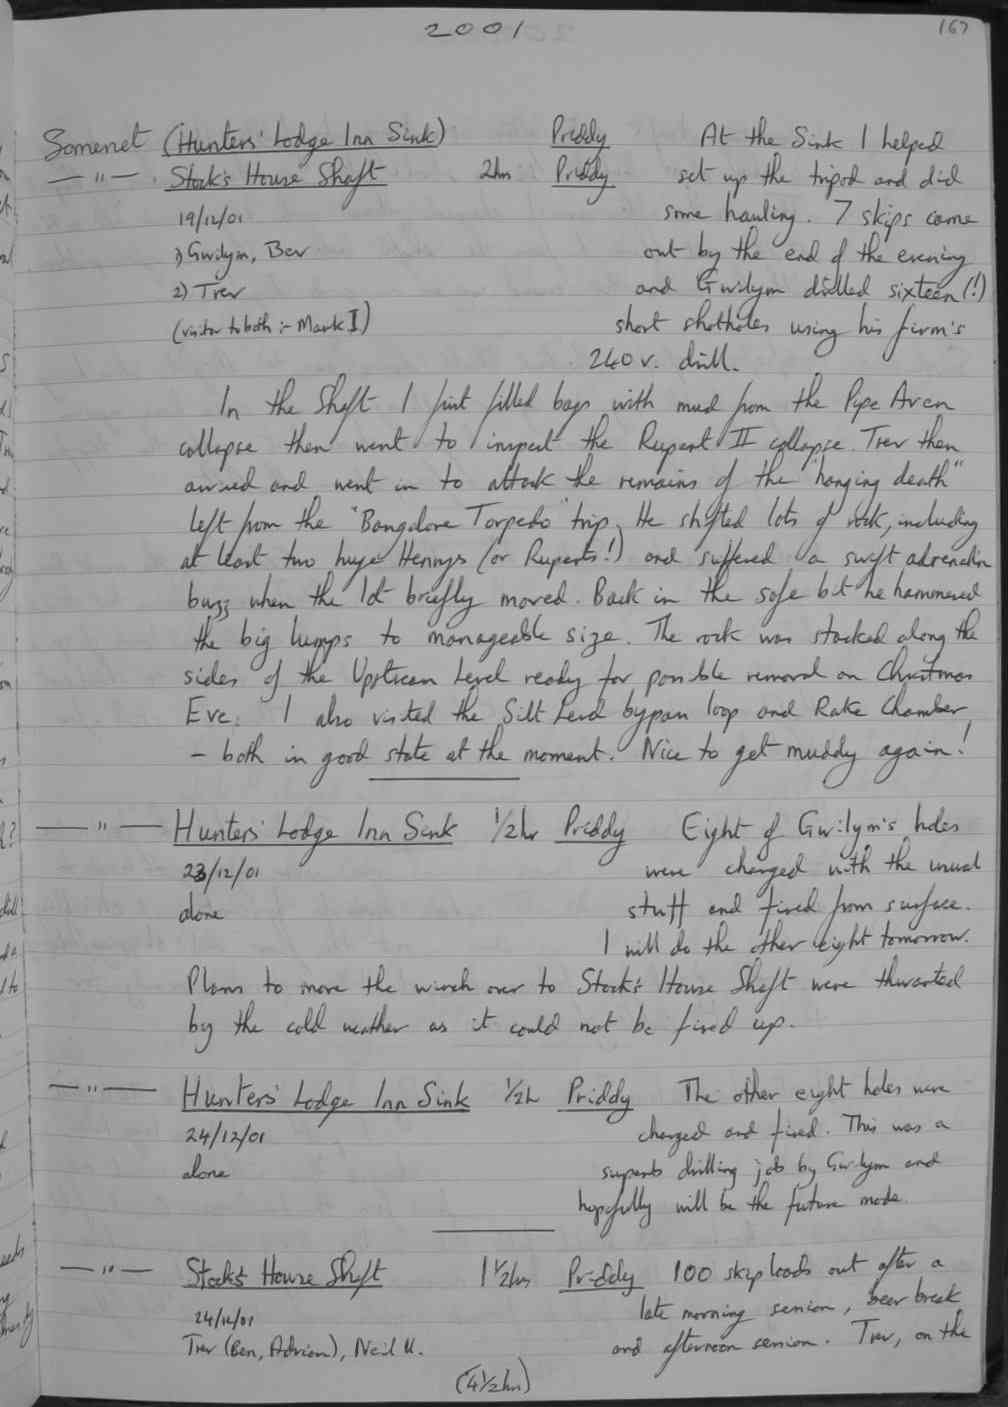 2001
167
Somerset (Hunters' Lodge Inn Sink) Priddy At the Sink I helped
— " — . Stock's House Shaft 2hrs Priddy set up the tripod and did
19/12/01 some hauling. 7 skips came
1) Gwilym, Bev out by the end of the evening
2) Trev and Gwilym drilled sixteen (!)
(visitor to both :- Mark I) short shotholes using his firm's
240 v. drill.
In the Shaft I first filled bags with mud from the Pipe Aven
collapse then went to inspect the Rupert II collapse. Trev then
arrived and went in to attack the remains of the "hanging death"
left from the "Bangalore Torpedo" trip. He shifted lots of rock, including
at least two huge Henrys (or Ruperts!) and suffered a swift adrenalin
buzz when the lot briefly moved. Back in the safe bit he hammered
the big lumps to manageable size. The rock was stacked along the
sides of the Upstream Level ready for possible removal on Christmas
Eve. I also visited the Silt Level bypass loop and Rake Chamber
– both in good state at the moment. Nice to get muddy again!
— " — Hunters' Lodge Inn Sink 1/2hr Priddy Eight of Gwilym's holes
23/12/01 were charged with the usual
alone stuff and fired from surface.
I will do the other eight tomorrow.
Plans to move the winch over to Stock's House Shaft were thwarted
by the cold weather as it could not be fired up.
— " — Hunters' Lodge Inn Sink 1/2h Priddy The other eight holes were
24/12/01 charged and fired. This was a
alone superb drilling job by Gwilym and
hopefully will be the future mode.
— " — Stock's House Shaft 1 1/2hrs Priddy 100 skiploads out after a
24/12/01 late morning session, beer break
Trev (Ben, Adrian), Neil U. and afternoon session. Trev, on the
(4 1/2hrs)